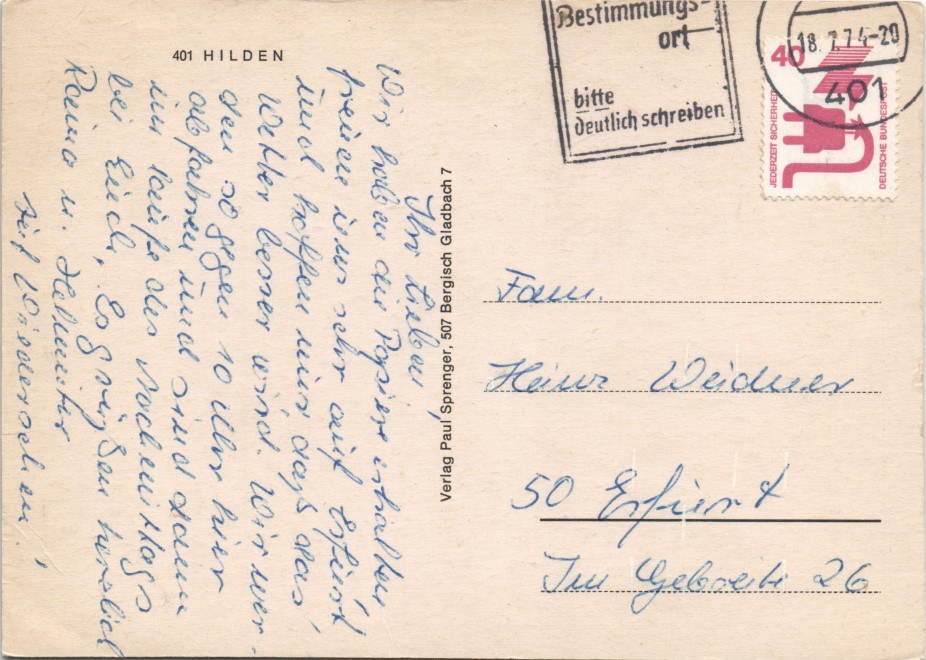 401 HILDEN
Ihr Lieben,
Wir haben die Papiere erhalten
freuen uns sehr auf Erfurt
und hoffen nur daß das
Wetter besser wird. Wir wer-
den so gegen 10 Uhr hier
abfahren und sind dann
im Laufe des Nachmittags
bei Euch. Es grüßen herzlich
u. Helmuter
auf Wiedersehen!
Verlag Paul Sprenger, 507 Bergisch Gladbach 7
Bestimmungs-
ort
bitte
deutlich schreiben
18.7.74-20
401
40
JEDERZEIT SICHERHEIT
DEUTSCHE BUNDESPOST
Fam.
Heinz Weidner
50 Erfurt
Im Gebreite 26